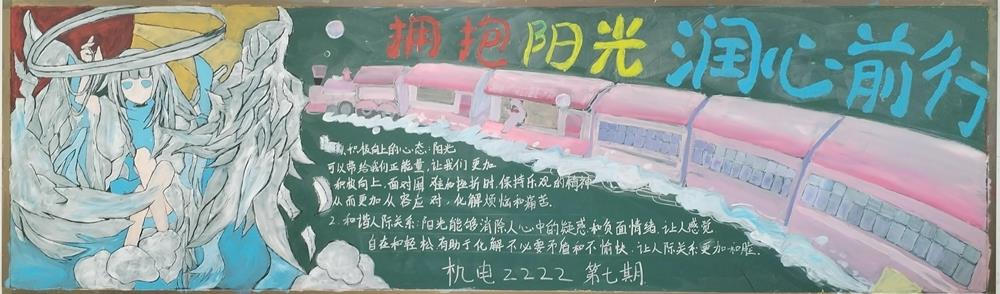 拥抱阳光 润心前行
积极向上的心态:阳光
可以带给我们正能量,让我们更加
积极向上,面对困难和挫折时,保持乐观的精神
从而更加从容应对,化解烦恼和痛苦.
2.和谐人际关系:阳光能够消除人心中的疑惑和负面情绪,让人感觉
自在和轻松有助于化解不必要矛盾和不愉快,让人际关系更加和睦.
机电2222 第七期